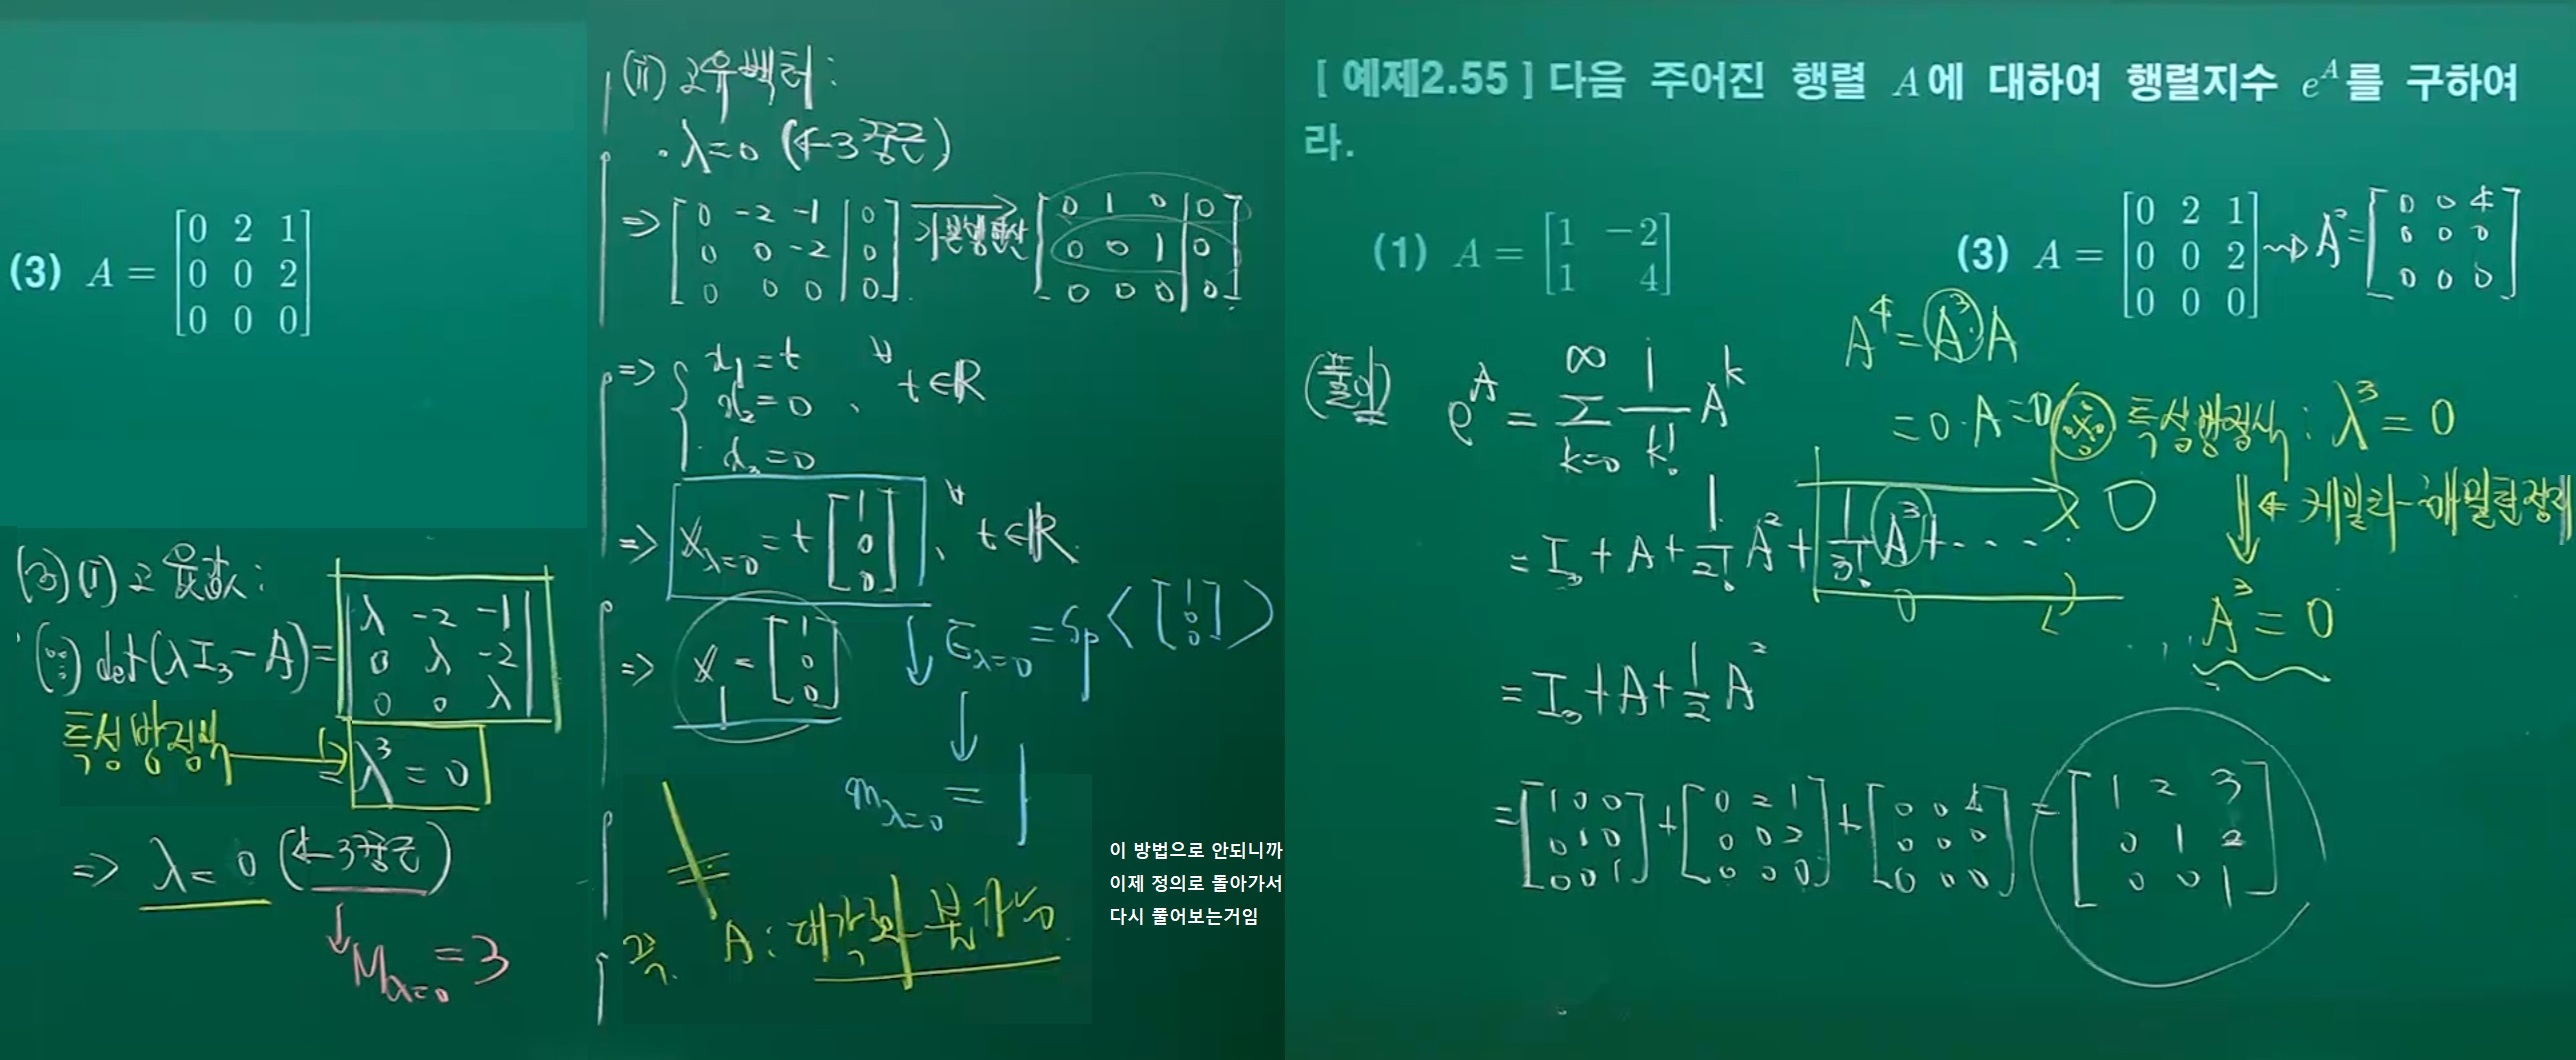 (3) A = [0 2 1
0 0 2
0 0 0]
(3) (i) 고윳값:
(∵) det(λI₃-A) = |λ -2 -1
0 λ -2
0 0 λ|
특성방정식 → = λ³ = 0
=> λ = 0 (←3중근)
↓ M_λ=0 = 3
(ii) 고유벡터:
· λ=0 (←3중근)
=> [0 -2 -1 | 0
0 0 -2 | 0
0 0 0 | 0]
기본행연산 →
[0 1 0 | 0
0 0 1 | 0
0 0 0 | 0]
=> { x₁ = t
x₂ = 0 , ∀t∈ℝ
x₃ = 0
=> x_λ=0 = t [1
0
0] , ∀t∈ℝ.
=> x₁ = [1
0
0]
↓ E_λ=0 = Sp< [1
0
0] >
↓
m_λ=0 = 1
≠
즉. A: 대각화 불가능.
이 방법으로 안되니까
이제 정의로 돌아가서
다시 풀어보는거임
[ 예제2.55 ] 다음 주어진 행렬 A에 대하여 행렬지수 e^A를 구하여
라.
(1) A = [1 -2
1 4]
(3) A = [0 2 1
0 0 2
0 0 0]
⇝ A² = [0 0 4
0 0 0
0 0 0]
A⁴ = A³·A
= 0·A = 0
(풀이) e^A = Σ_{k=0}^{∞} 1/k! A^k
(∵) 특성방정식 : λ³ = 0
⇓ ← 케일리-해밀턴정리
A³ = 0
= I₃ + A + 1/2! A² + 1/3! A³ + ···· 0
0
= I₃ + A + 1/2 A²
= [1 0 0
0 1 0
0 0 1] + [0 2 1
0 0 2
0 0 0] + [0 0 4
0 0 0
0 0 0] = [1 2 3
0 1 2
0 0 1]